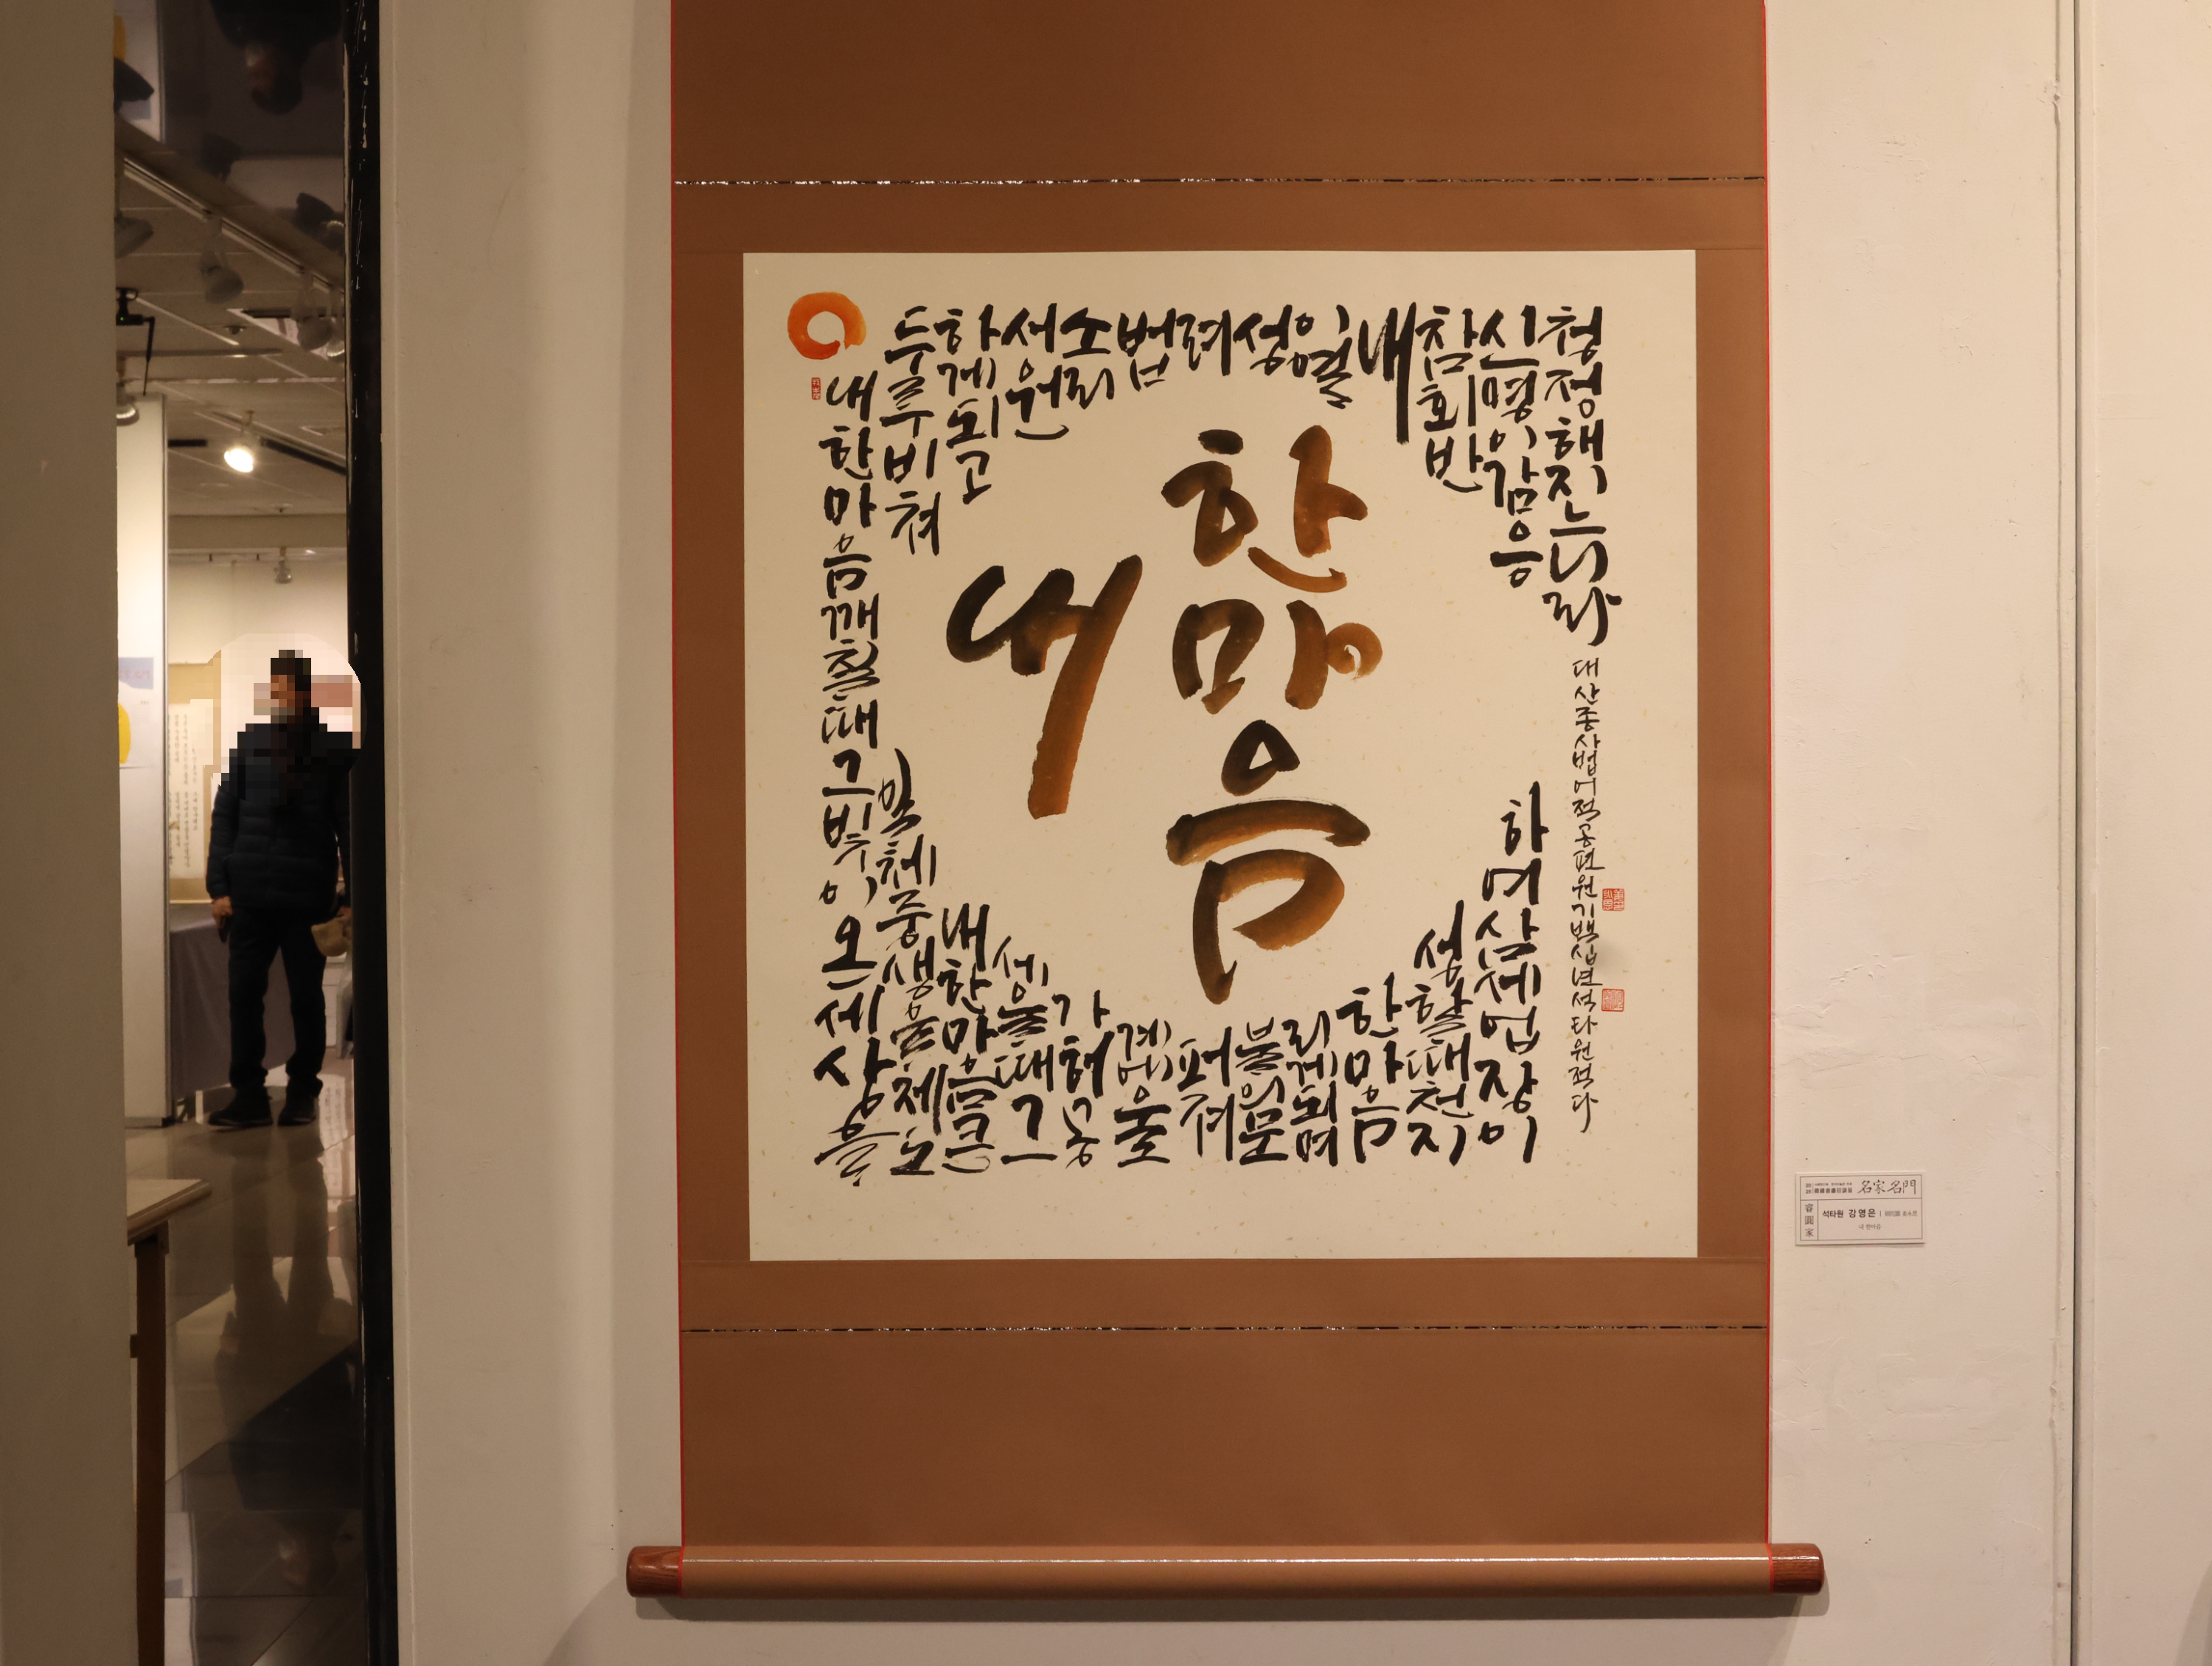 한마음
내
내한마음깨칠때그빛이온세상을
두루비쳐
일체중생을제도
하게되고
내한마음큰
서원
세울때그
소리
가허공
법
계에울
려
퍼져
성
불의문
이열
리게되며
내
한마음
참회반
성할때천지
신명이감응
하여삼세업장이
청정해지느니라
대산종사법어적공편원기백십년석타원적다
名家名門
석타원 강영은
내 한마음